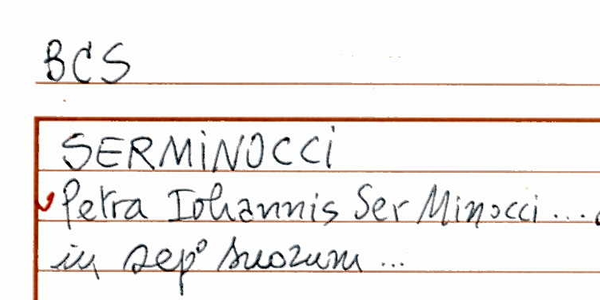 BCS
SERMINOCCI
Petra Iohannis Ser Minocci ...
in sepº suorum ...